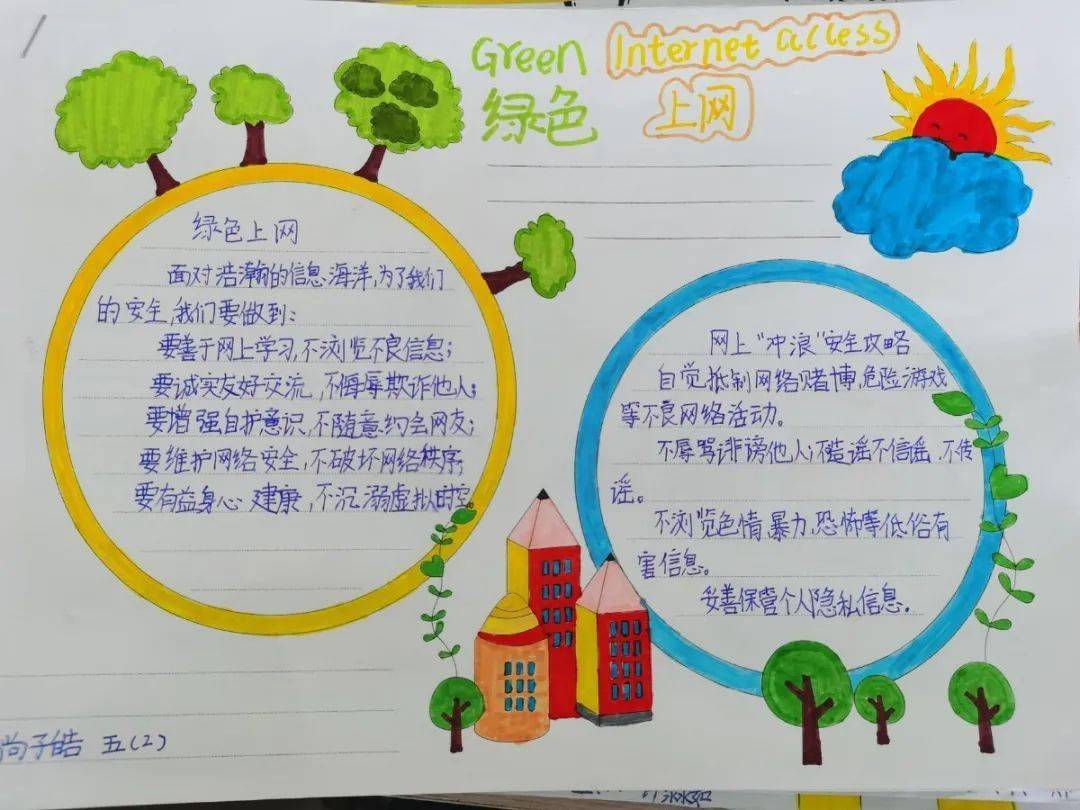 Green Internet access
绿色 上网
绿色上网
面对浩瀚的信息海洋,为了我们
的安全,我们要做到:
要善于网上学习,不浏览不良信息;
要诚实友好交流,不侮辱欺诈他人;
要增强自护意识,不随意约会网友;
要维护网络安全,不破坏网络秩序;
要有益身心建康,不沉溺虚拟时空。
网上“冲浪”安全攻略
自觉抵制网络赌博,危险游戏
等不良网络活动。
不辱骂诽谤他人;不造谣不信谣、不传
谣。
不浏览色情、暴力、恐怖等低俗有
害信息。
妥善保管个人隐私信息。
尚子皓 五(2)